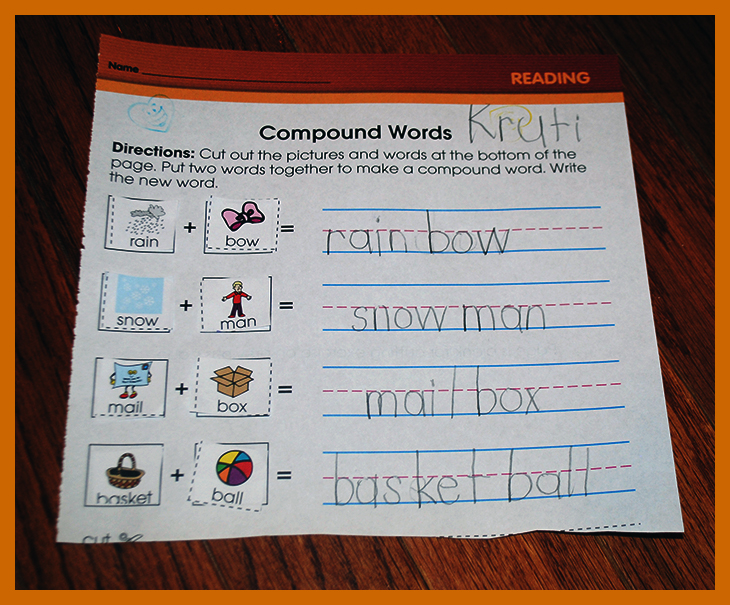 Name
READING
Compound Words Kruti
Directions: Cut out the pictures and words at the bottom of the
page. Put two words together to make a compound word. Write
the new word.
rain + bow = rain bow
snow + man = snow man
mail + box = mail box
basket + ball = basket ball
cut